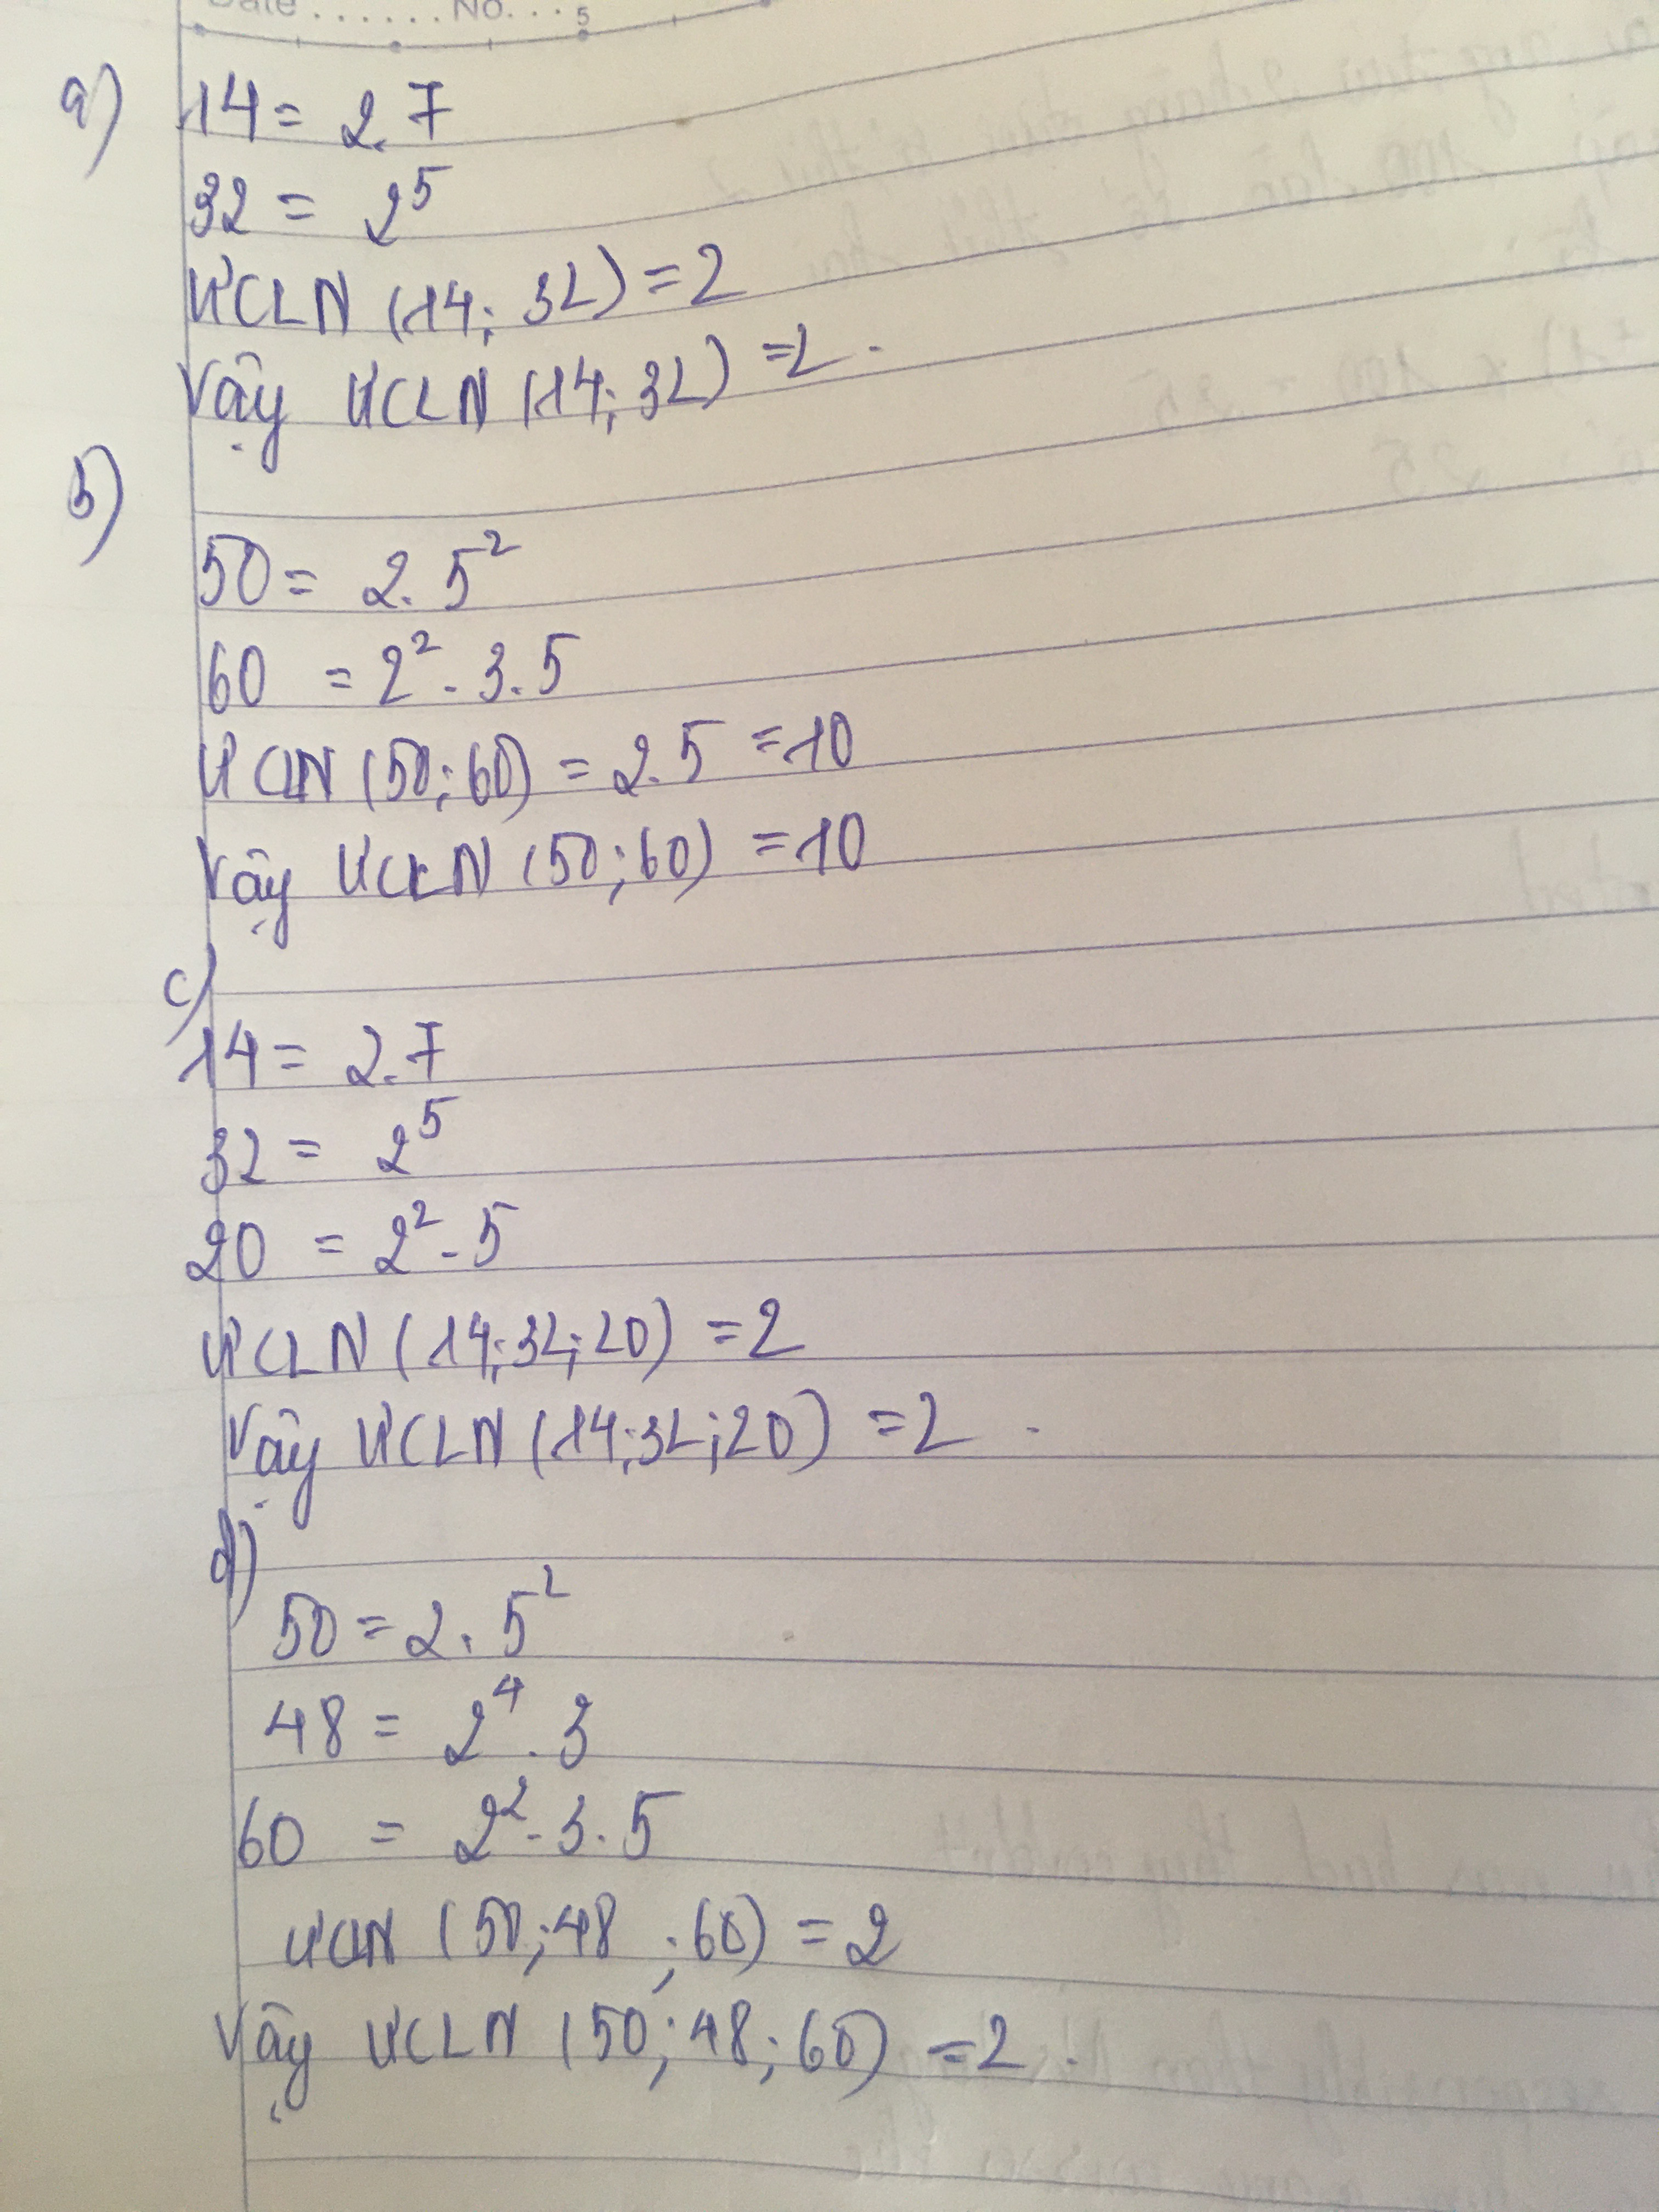 Date ...... No. ... 5
a)
14 = 2.7
32 = 2⁵
ƯCLN (14; 32) = 2
Vậy ƯCLN (14; 32) = 2.
b)
50 = 2.5²
60 = 2².3.5
ƯCLN (50; 60) = 2.5 = 10
Vậy ƯCLN (50; 60) = 10
c)
14 = 2.7
32 = 2⁵
20 = 2².5
ƯCLN (14; 32; 20) = 2
Vậy ƯCLN (14; 32; 20) = 2.
d)
50 = 2.5²
48 = 2⁴.3
60 = 2².3.5
ƯCLN (50; 48; 60) = 2
Vậy ƯCLN (50; 48; 60) = 2.